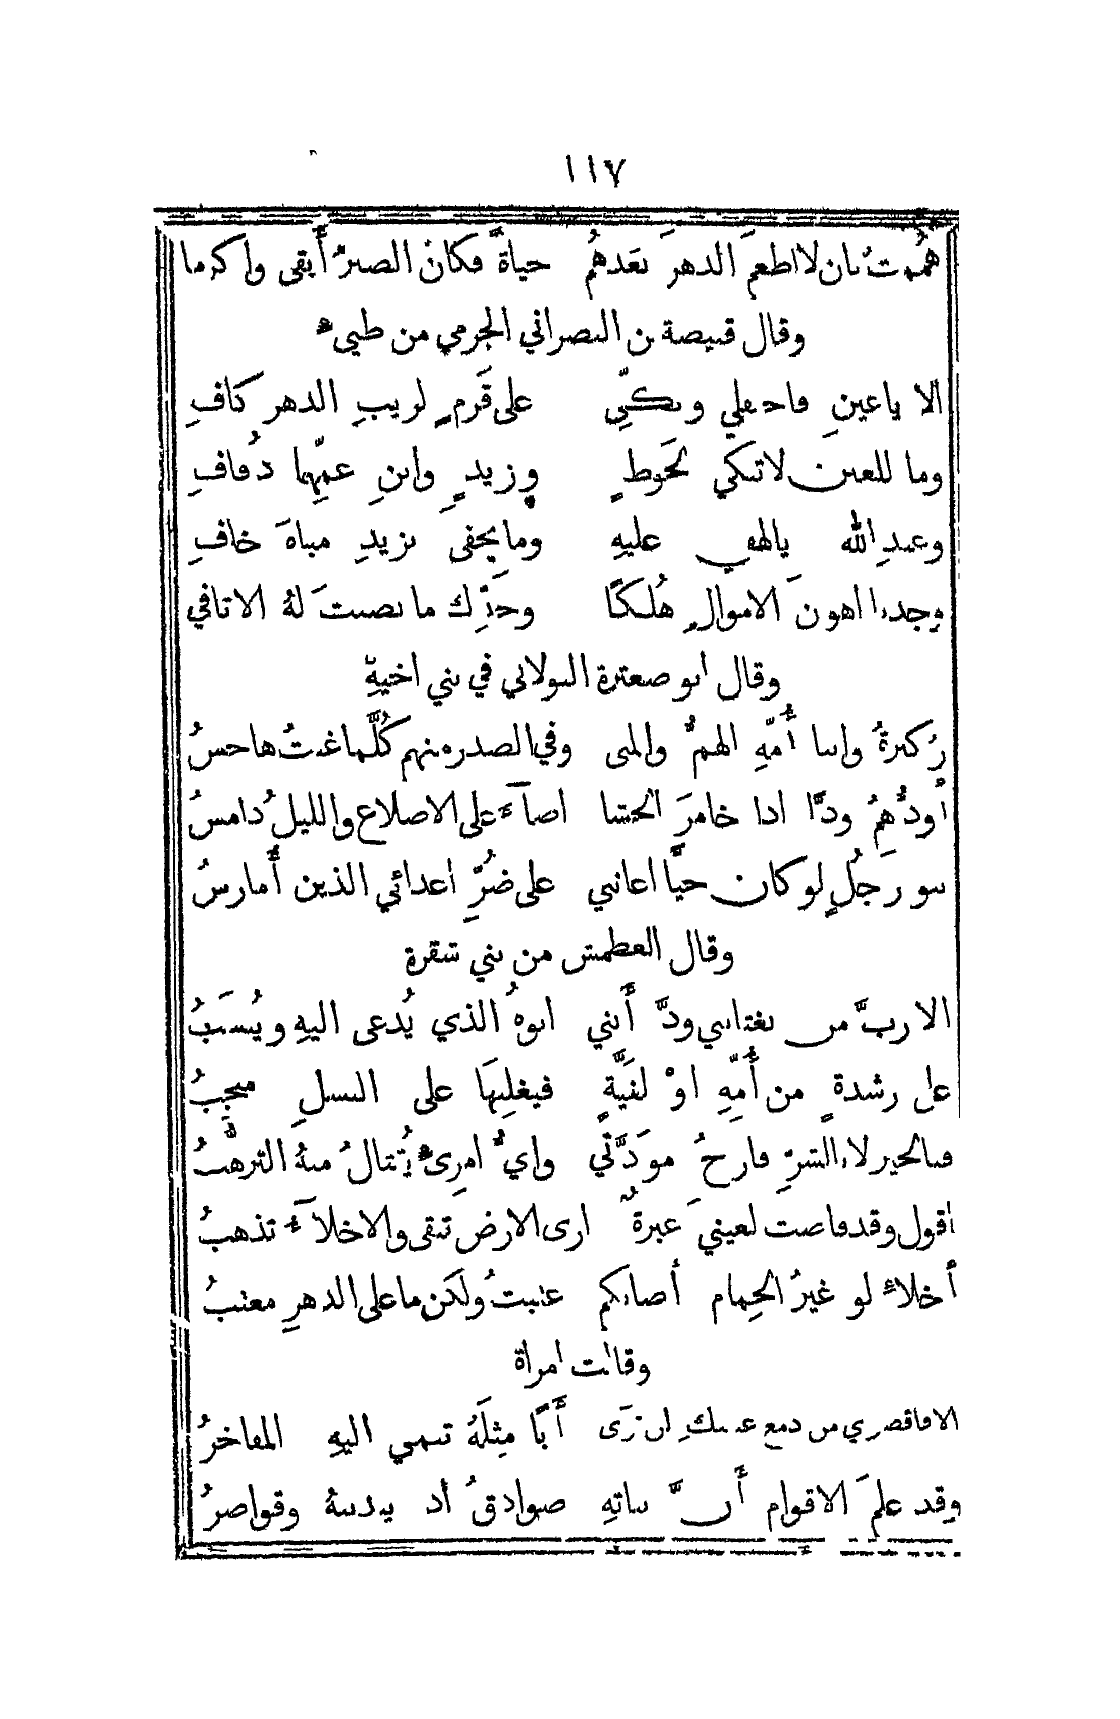 ١١٧
هممت بان لا اطعمَ الدهرَ بعدهُم حياةً فكانَ الصبرُ أبقى واكرما
وقال قبيصة بن النصراني الجرمي من طيىء
الا ياعينِ فاحفلي وبكّي على قَرمٍ لريبِ الدهر كافِ
وما للعين لاتبكي لحَوطٍ وزيدٍ وابنِ عمّها ذُفافِ
وعبدِ الله يالهفي عليهِ ومايخفى بزيدِ مناةَ خافِ
وجدنا اهونَ الاموالِ هُلكًا وجَدِّك ما نصبتَ لهُ الاثافي
وقال ابو صعترة البولاني في بني اخيهِ
زُكيرةُ وابنا أُمّهِ الهمُّ والمنى وفي الصدر منهم كُلَّما غبتُ هاجسُ
أَودُّهُمُ ودًّا اذا خامرَ الحشا اضآءَ على الاضلاع والليلُ دامسُ
بنو رَجلٍ لو كان حيًّا اعانني على ضُرِّ اعدائي الذين أُمارسُ
وقال الغطمش من بني شقرة
الا ربَّ من يغتابني ودَّ أَنني ابوهُ الذي يُدعى اليهِ ويُنسَبُ
على رشدةٍ من أُمّهِ اوْ لغَيَّةٍ فيغلِبَها على النسلِ منجِبُ
فبالخير لا بالشرِّ فارجُ مودَّتي وايُّ امرِىءٍ يُقتالُ منهُ الترهُّبُ
اقول وقد فاضت لعينيَ عبرةٌ ارى الارض تبقى والاخلآءَ تذهبُ
أَخلاءِ لو غيرُ الحِمام أَصابكم عتبتُ ولكن ما على الدهرِ معتبُ
وقالت امراة
الا فاقصري من دمع عينيكِ لن تَرَى أَبًا مِثلَهُ تنمي اليهِ المفاخرُ
وقد علمَ الاقوام أَنَّ بناتهِ صوادقُ اذ يندبنهُ وقواصرُ